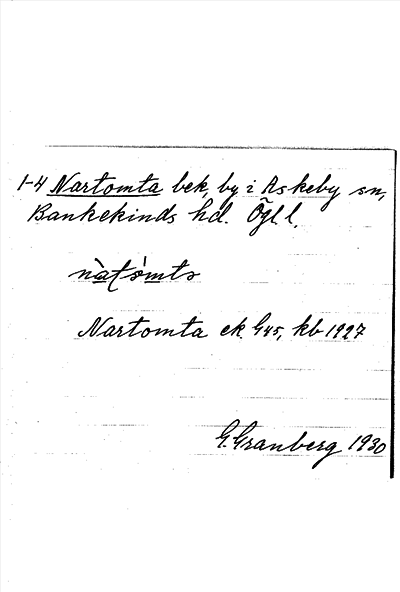 1-4 Nartomta bek, by i Askeby sn,
Bankekinds hd. Ögl l.
Nartomta ek. G45, kb 1927
G. Granberg 1930